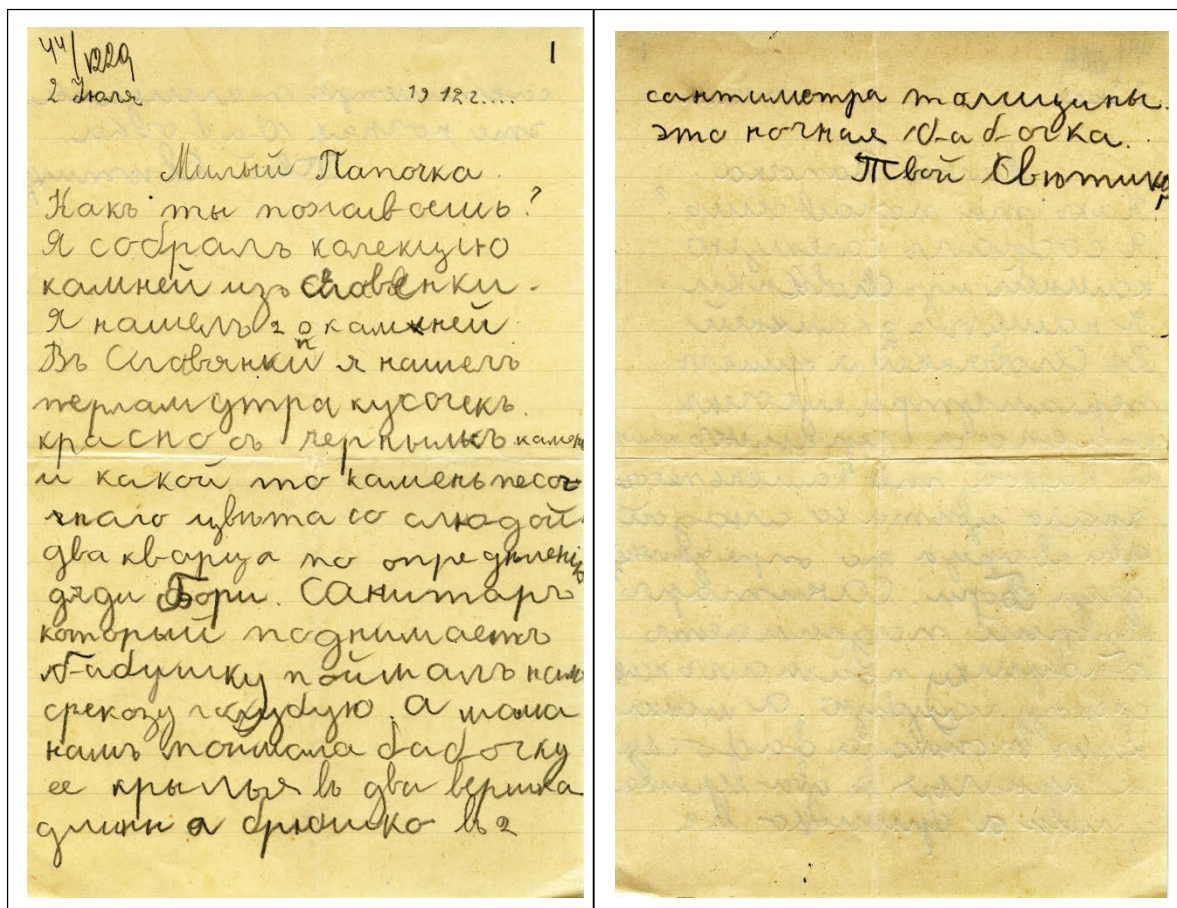 44/1229
1
2 Июля 1912 г....
Милый Папочка.
Какъ ты пожаиваешь?
Я собралъ колекцiю
камней изъ Славянки.
Я нашелъ 20 камней
Въ Славянкѣ я нашелъ
перламутра кусочекъ.
красно съ чернымъ камень
и какой то камень песоч
чнаго цвѣта со слюдой
два кварца по опредѣленiю
дяди Бори. Санитаръ
который поднимаетъ
бабушку поймалъ намъ
срекозу голубую. А мама
намъ поймала бабочку
ее крылья въ два вершка
длины а брюшко въ 2
сантиметра толщины.
это ночная бабочка.
Твой